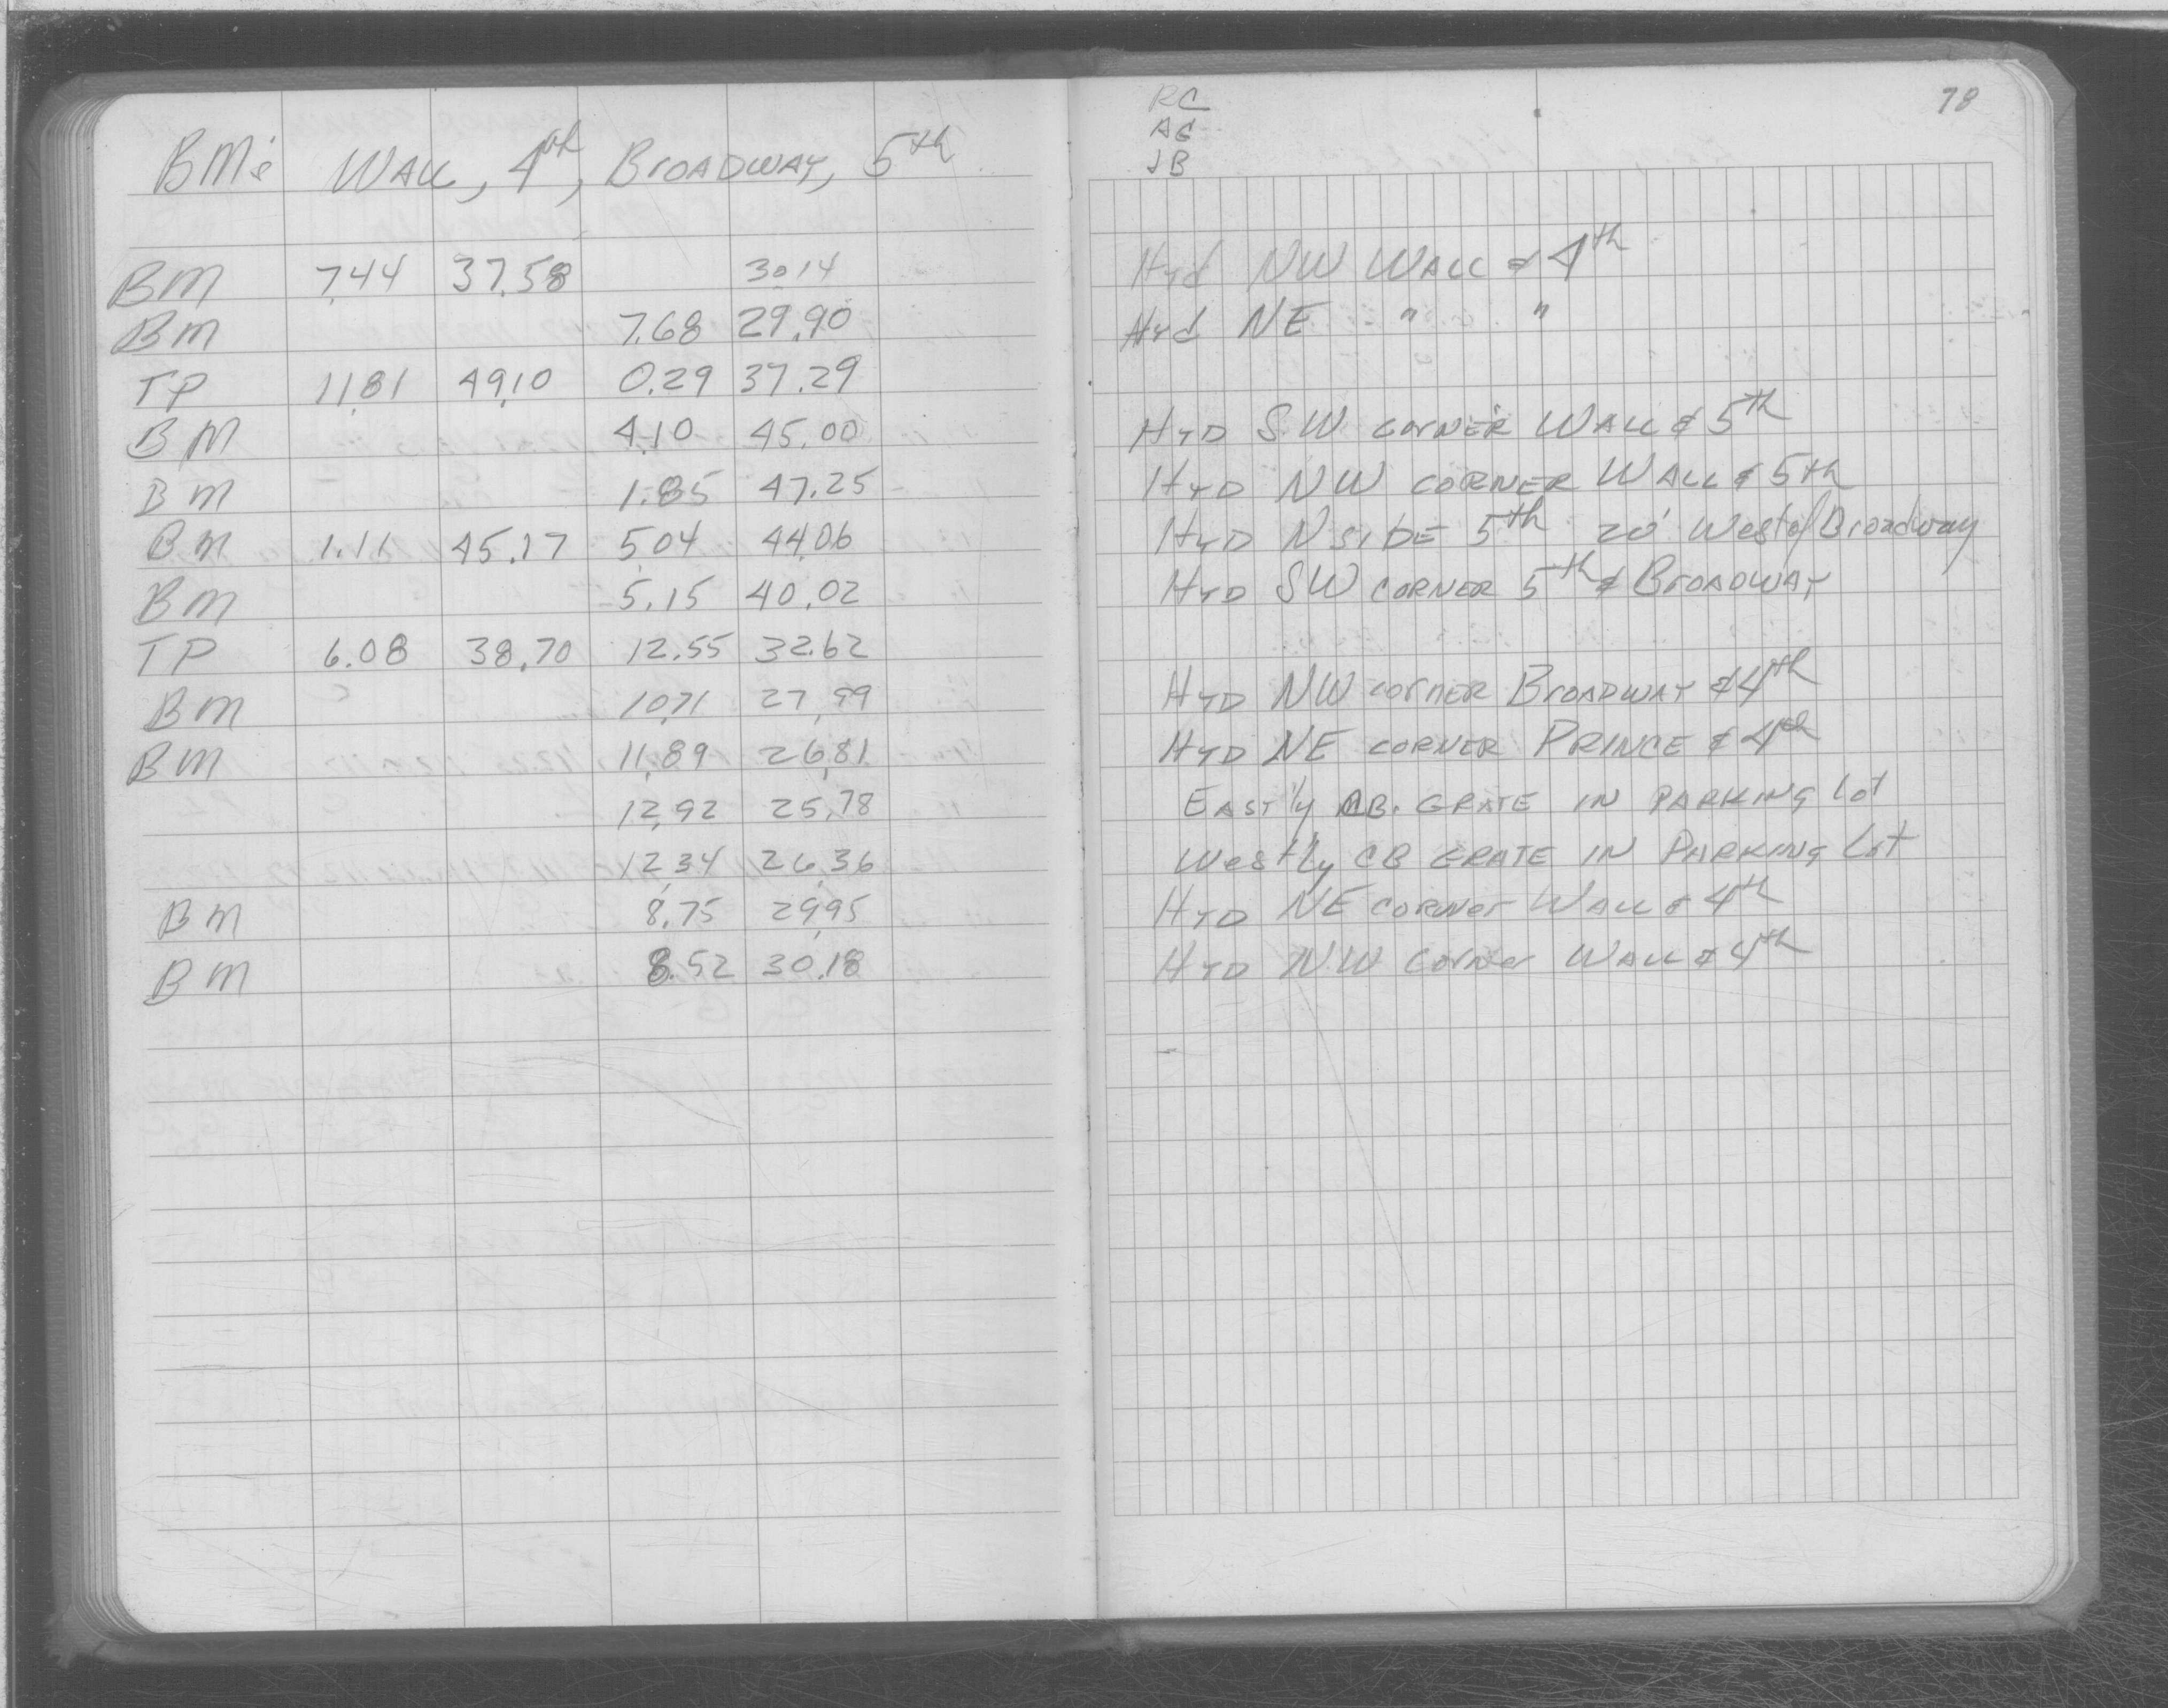 BM's WALL, 4th, BROADWAY, 5th
BM 7.44 37.58 30.14
BM 7.68 29.90
TP 11.81 49.10 0.29 37.29
BM 4.10 45.00
BM 1.85 47.25
BM 1.11 45.17 5.04 44.06
BM 5.15 40.02
TP 6.08 38.70 12.55 32.62
BM 10.71 27.99
BM 11.89 26.81
12.92 25.78
12.34 26.36
BM 8.75 29.95
BM 8.52 30.18
RC
AC
JB
78
Hyd NW WALL & 4th
Hyd NE " "
HYD S.W CORNER WALL & 5th
HYD NW CORNER WALL & 5th
HYD N SIDE 5th 20' West of Broadway
HYD SW CORNER 5th & BROADWAY
HYD NW CORNER BROADWAY & 4th
HYD NE CORNER PRINCE & 4th
EAST'ly CB. GRATE IN PARKING Lot
Westly CB GRATE IN PARKING Lot
HYD NE CORNER WALL & 4th
HYD NW Corner WALL & 4th